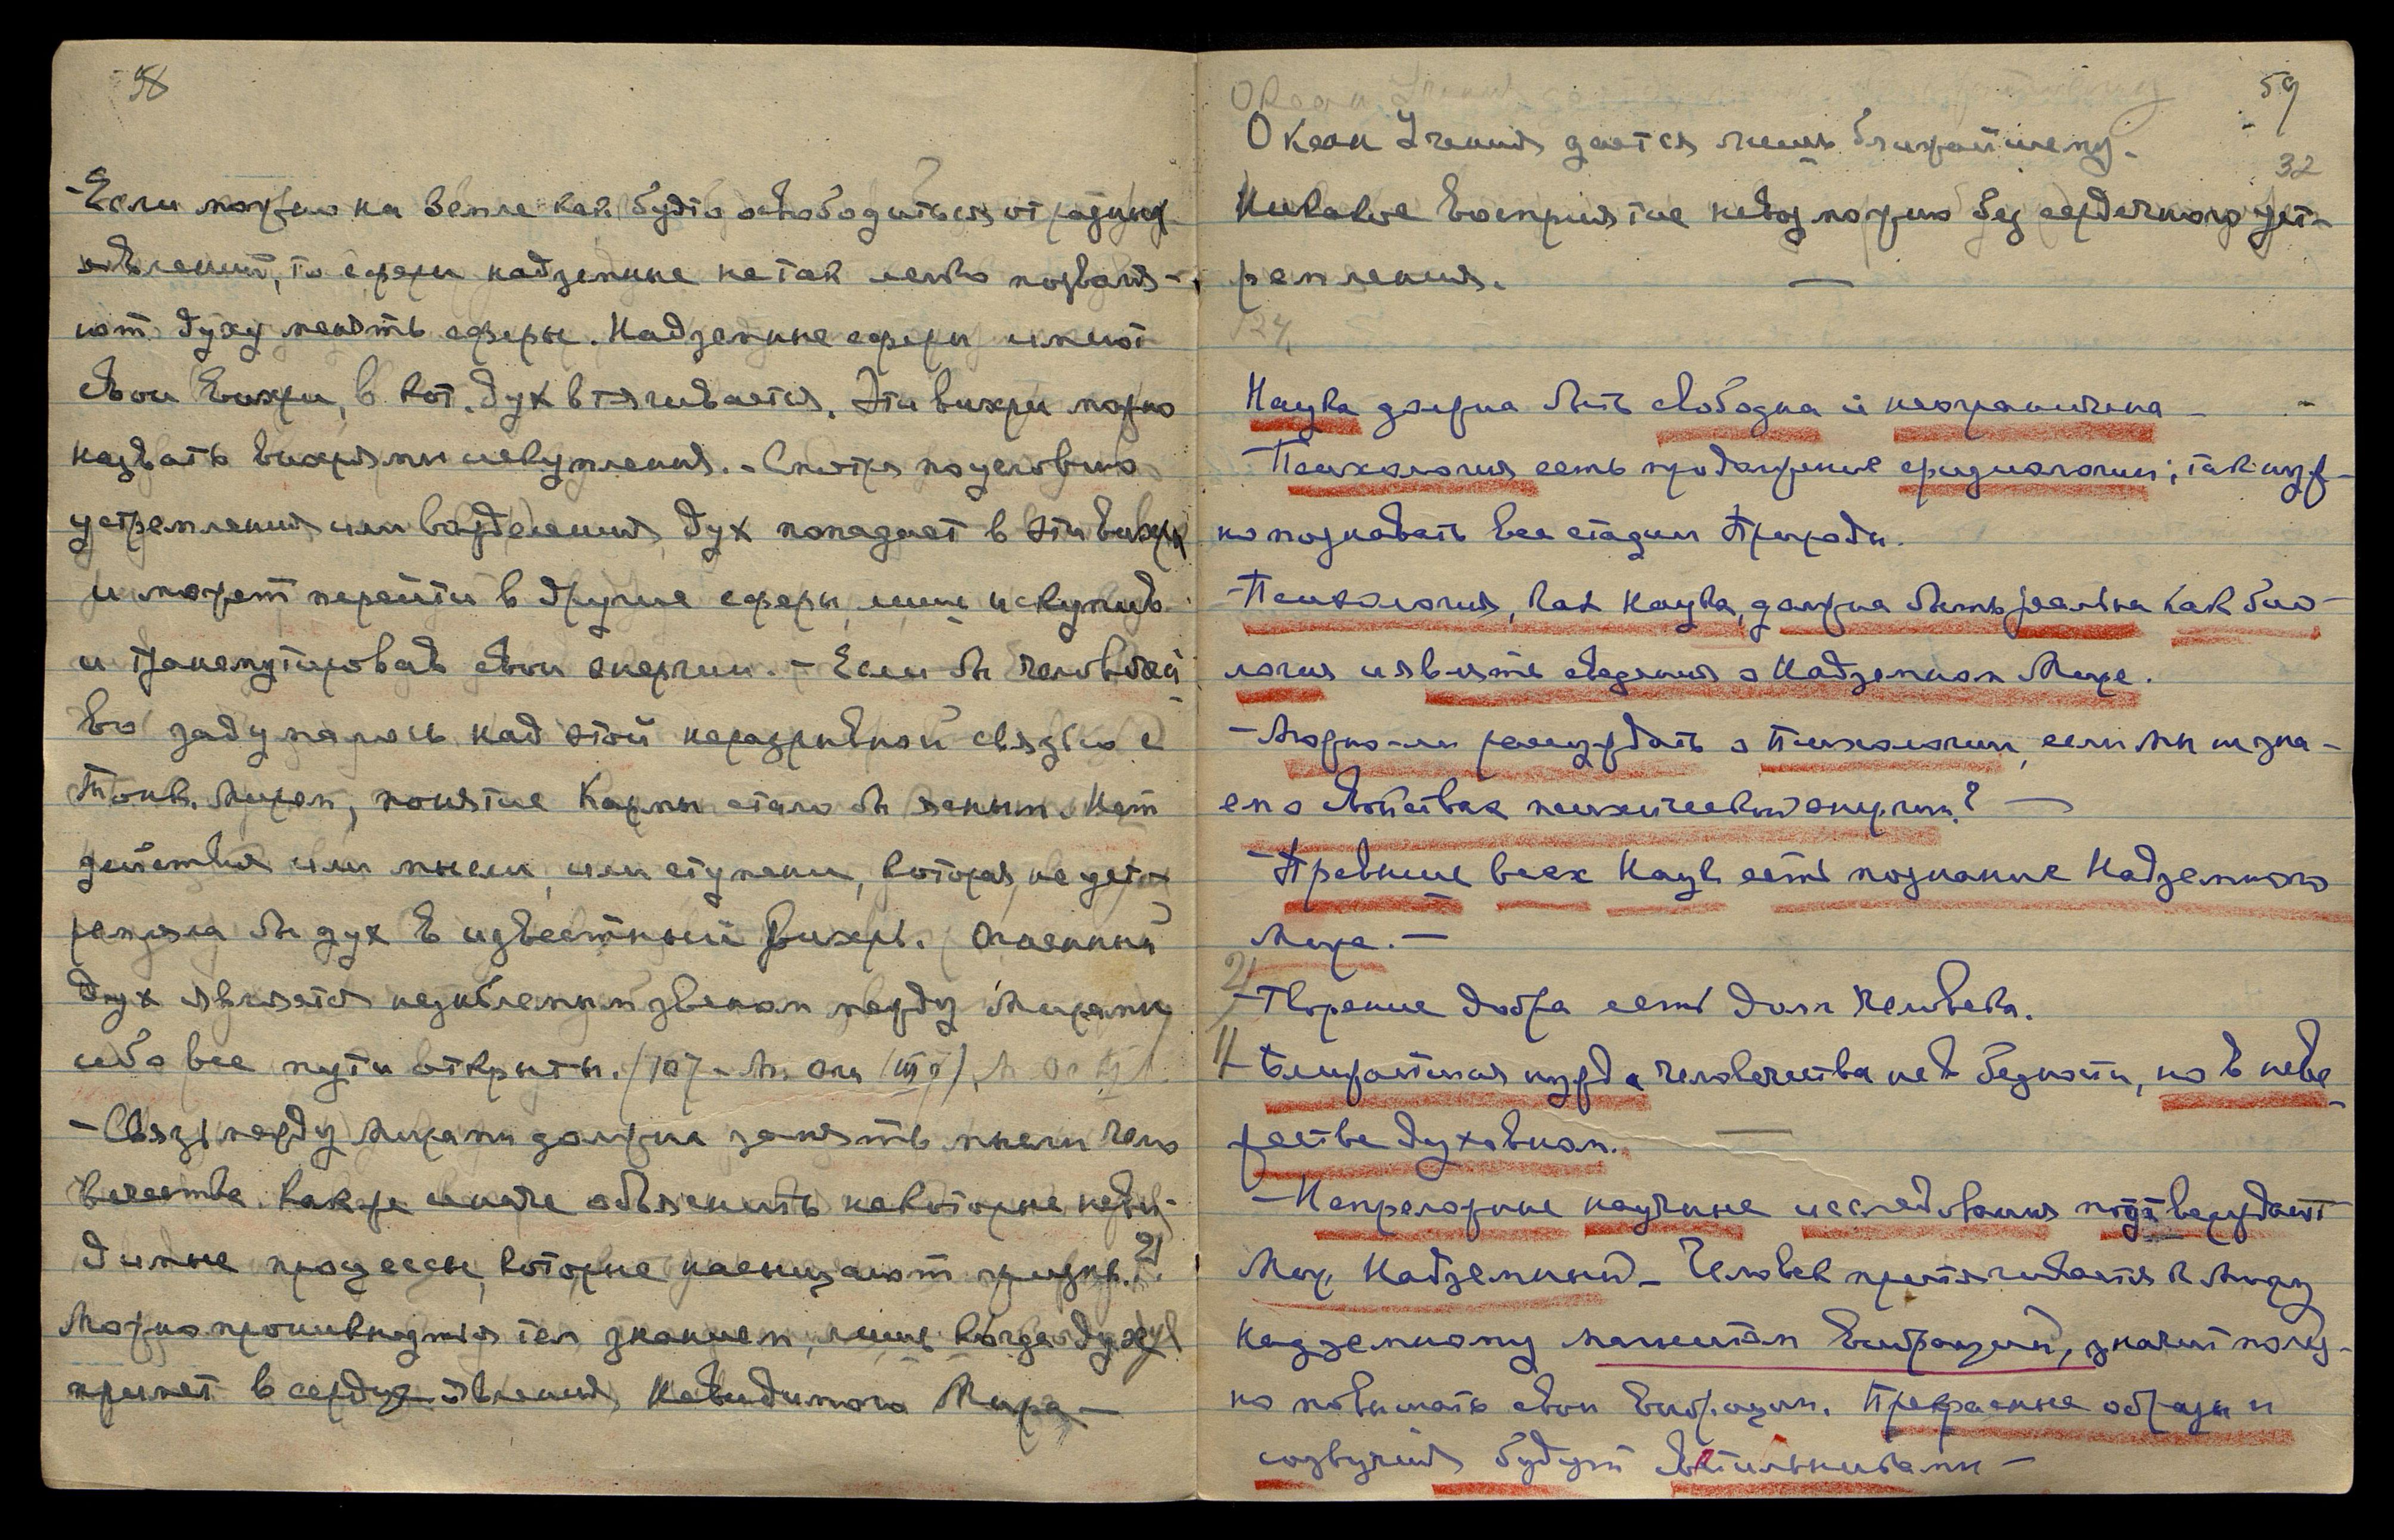 58
-Если можно на Земле как будто освободиться от разных
явлений, то сферы надземные не так легко позволя-
ют духу менять сферы. Надземные сферы имеют
свои вихри, в кот. дух втягивается. Эти вихри можно
назвать вихрями искупления. - Смотря по условию
устремления или вожделения, дух попадает в эти вихри
и может перейти в другие сферы, лишь искупив
и трансмутировав свои энергии. - Если бы человечест
во задумалось над этой неразрывной связью с
Тонк. Миром, понятие Кармы стало бы ясным. Нет
действия или мысли, или ступени, которая не уст-
ремляла бы дух в известный вихрь. Огненный
дух является незыблемым звеном между Мирами,
ибо все пути открыты. (107 - М. Огн (III ч)
- Связь между Мирами должна занять мысли чело
вечества. Как же иначе объяснить некоторые невы-
димые процессы, которые насыщают жизнь.
Можно проникнуться тем знанием, лишь когда дух
примет в сердце явления Невидимого Мира —
59
Океан Учения
Океан Учения дается лишь ближайшему.
32
Никакое восприятие невозможно без сердечного уст-
ремления. —
124,
Наука должна быть свободна и неограничена -
- Психология есть продолжение физиологии; так нуж-
но познавать все стадии Природы.
- Психология, как наука, должна быть реальна как био-
логия и явить сведения о Надземном Мире.
- Можно-ли рассуждать о Психологии, если мы не зна-
ем о свойствах психической энергии? —
- Превыше всех Наук есть познание Надземного
Мира. —
2/
- Творение добра есть долг человека.
1/
- Ближайшая нужда человечества не в бедности, но в неве
жестве духовном. —
- Непреложные научные исследования подтверждают
Мир Надземный - Человек притягивается к Миру
Надземному магнитом вибраций, значит нуж-
но повышать свои вибрации. Прекрасные образы и
созвучия будут светильниками —